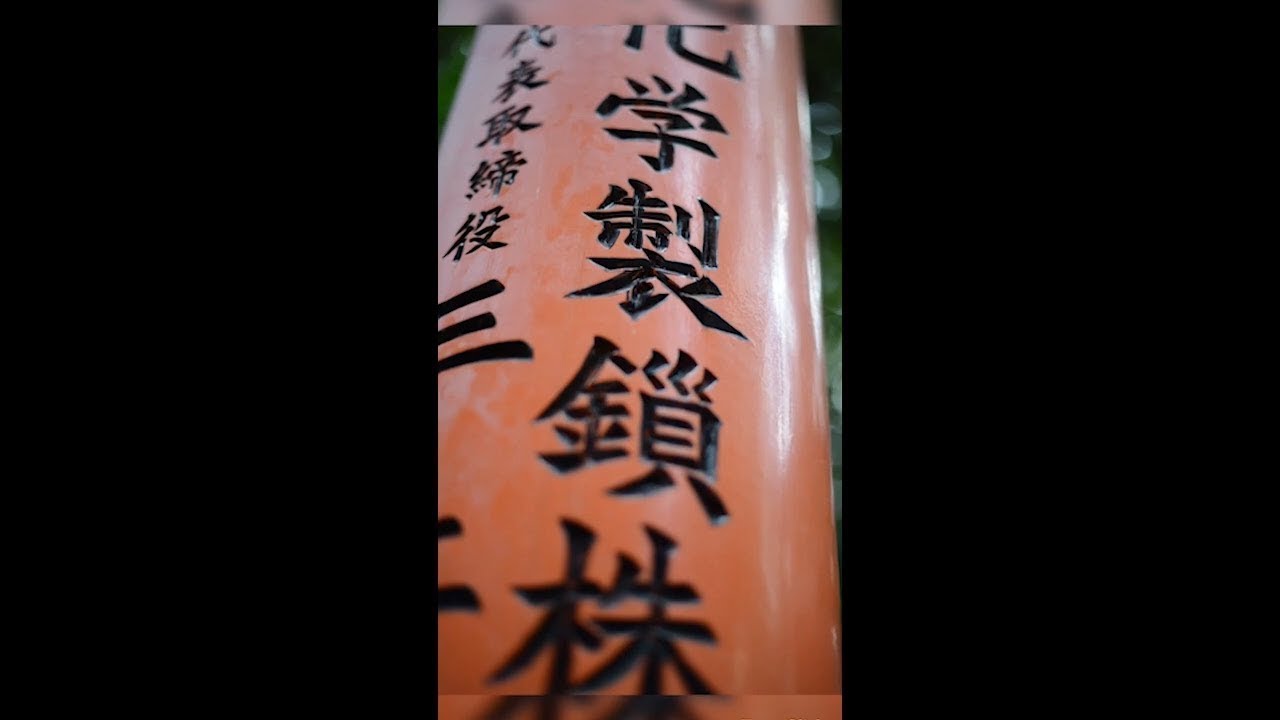 化学製鎖株
代表取締役
三